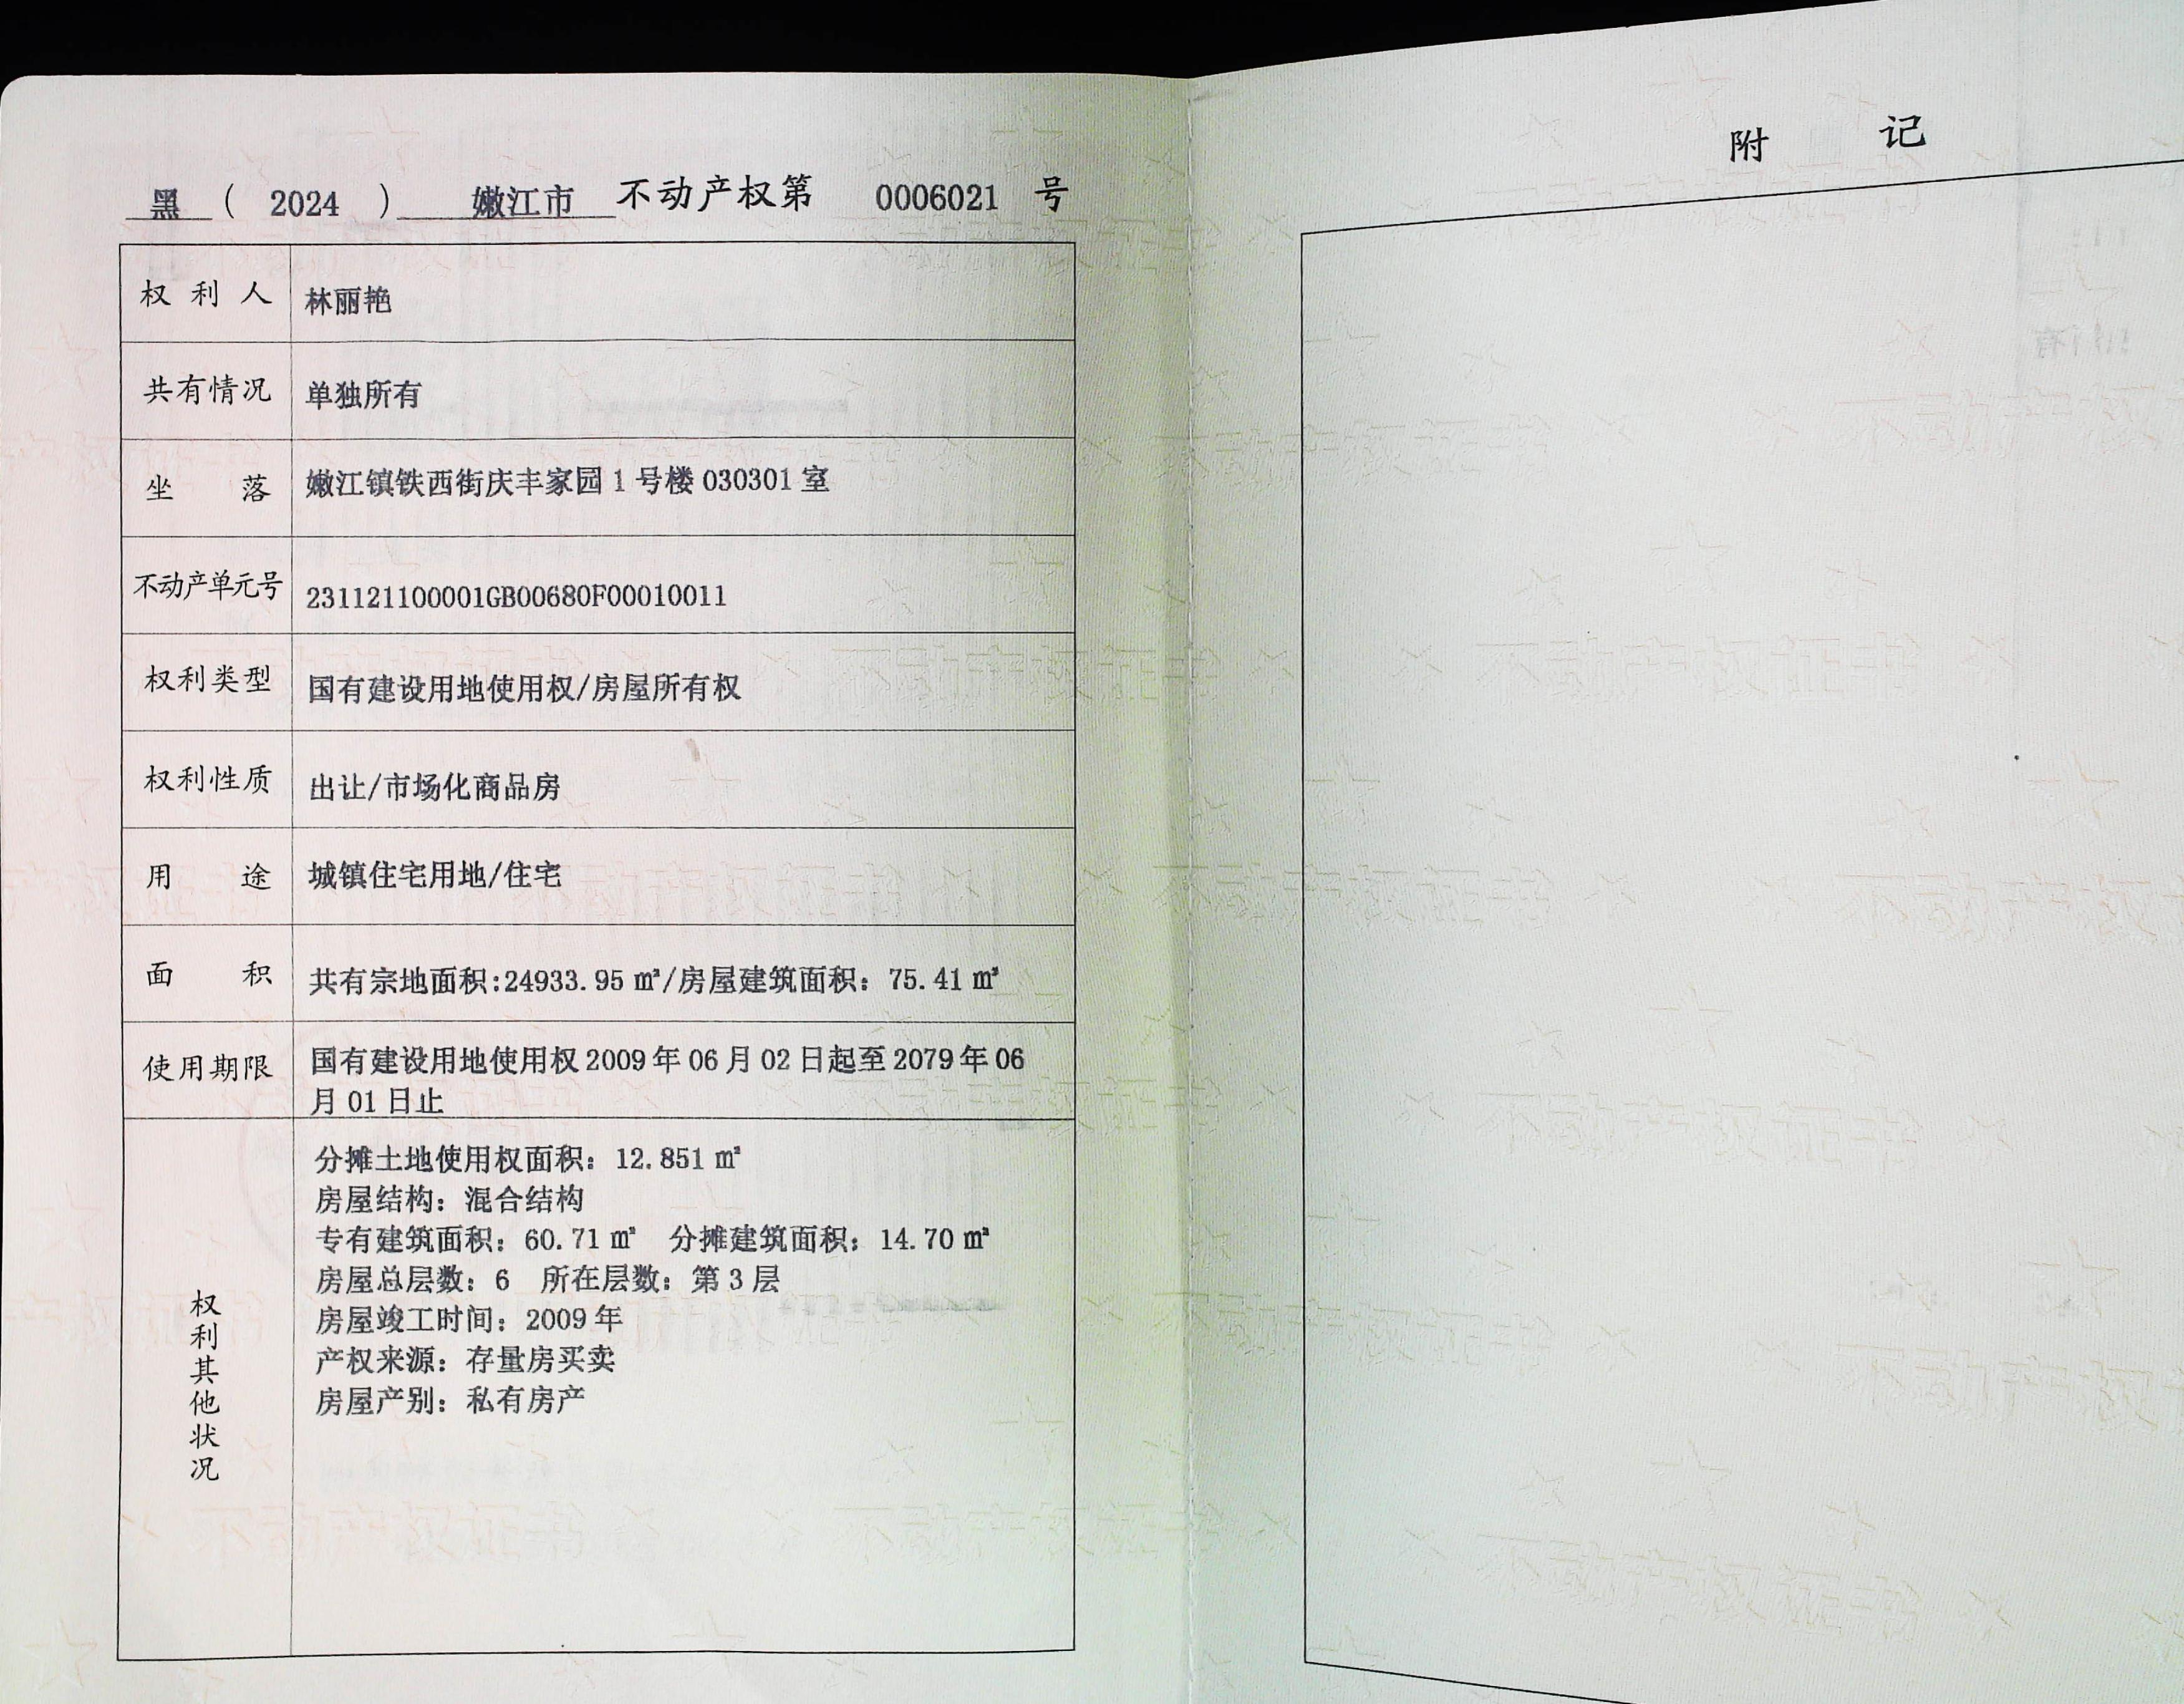 黑 ( 2024 ) 嫩江市 不动产权第 0006021 号
权利人 林丽艳
共有情况 单独所有
坐落 嫩江镇铁西街庆丰家园 1 号楼 030301 室
不动产单元号 231121100001GB00680F00010011
权利类型 国有建设用地使用权/房屋所有权
权利性质 出让/市场化商品房
用途 城镇住宅用地/住宅
面积 共有宗地面积:24933.95 ㎡/房屋建筑面积：75.41 ㎡
使用期限 国有建设用地使用权 2009 年 06 月 02 日起至 2079 年 06
月 01 日止
权利其他状况
分摊土地使用权面积：12.851 ㎡
房屋结构：混合结构
专有建筑面积：60.71 ㎡ 分摊建筑面积：14.70 ㎡
房屋总层数：6 所在层数：第 3 层
房屋竣工时间：2009 年
产权来源：存量房买卖
房屋产别：私有房产
附 记